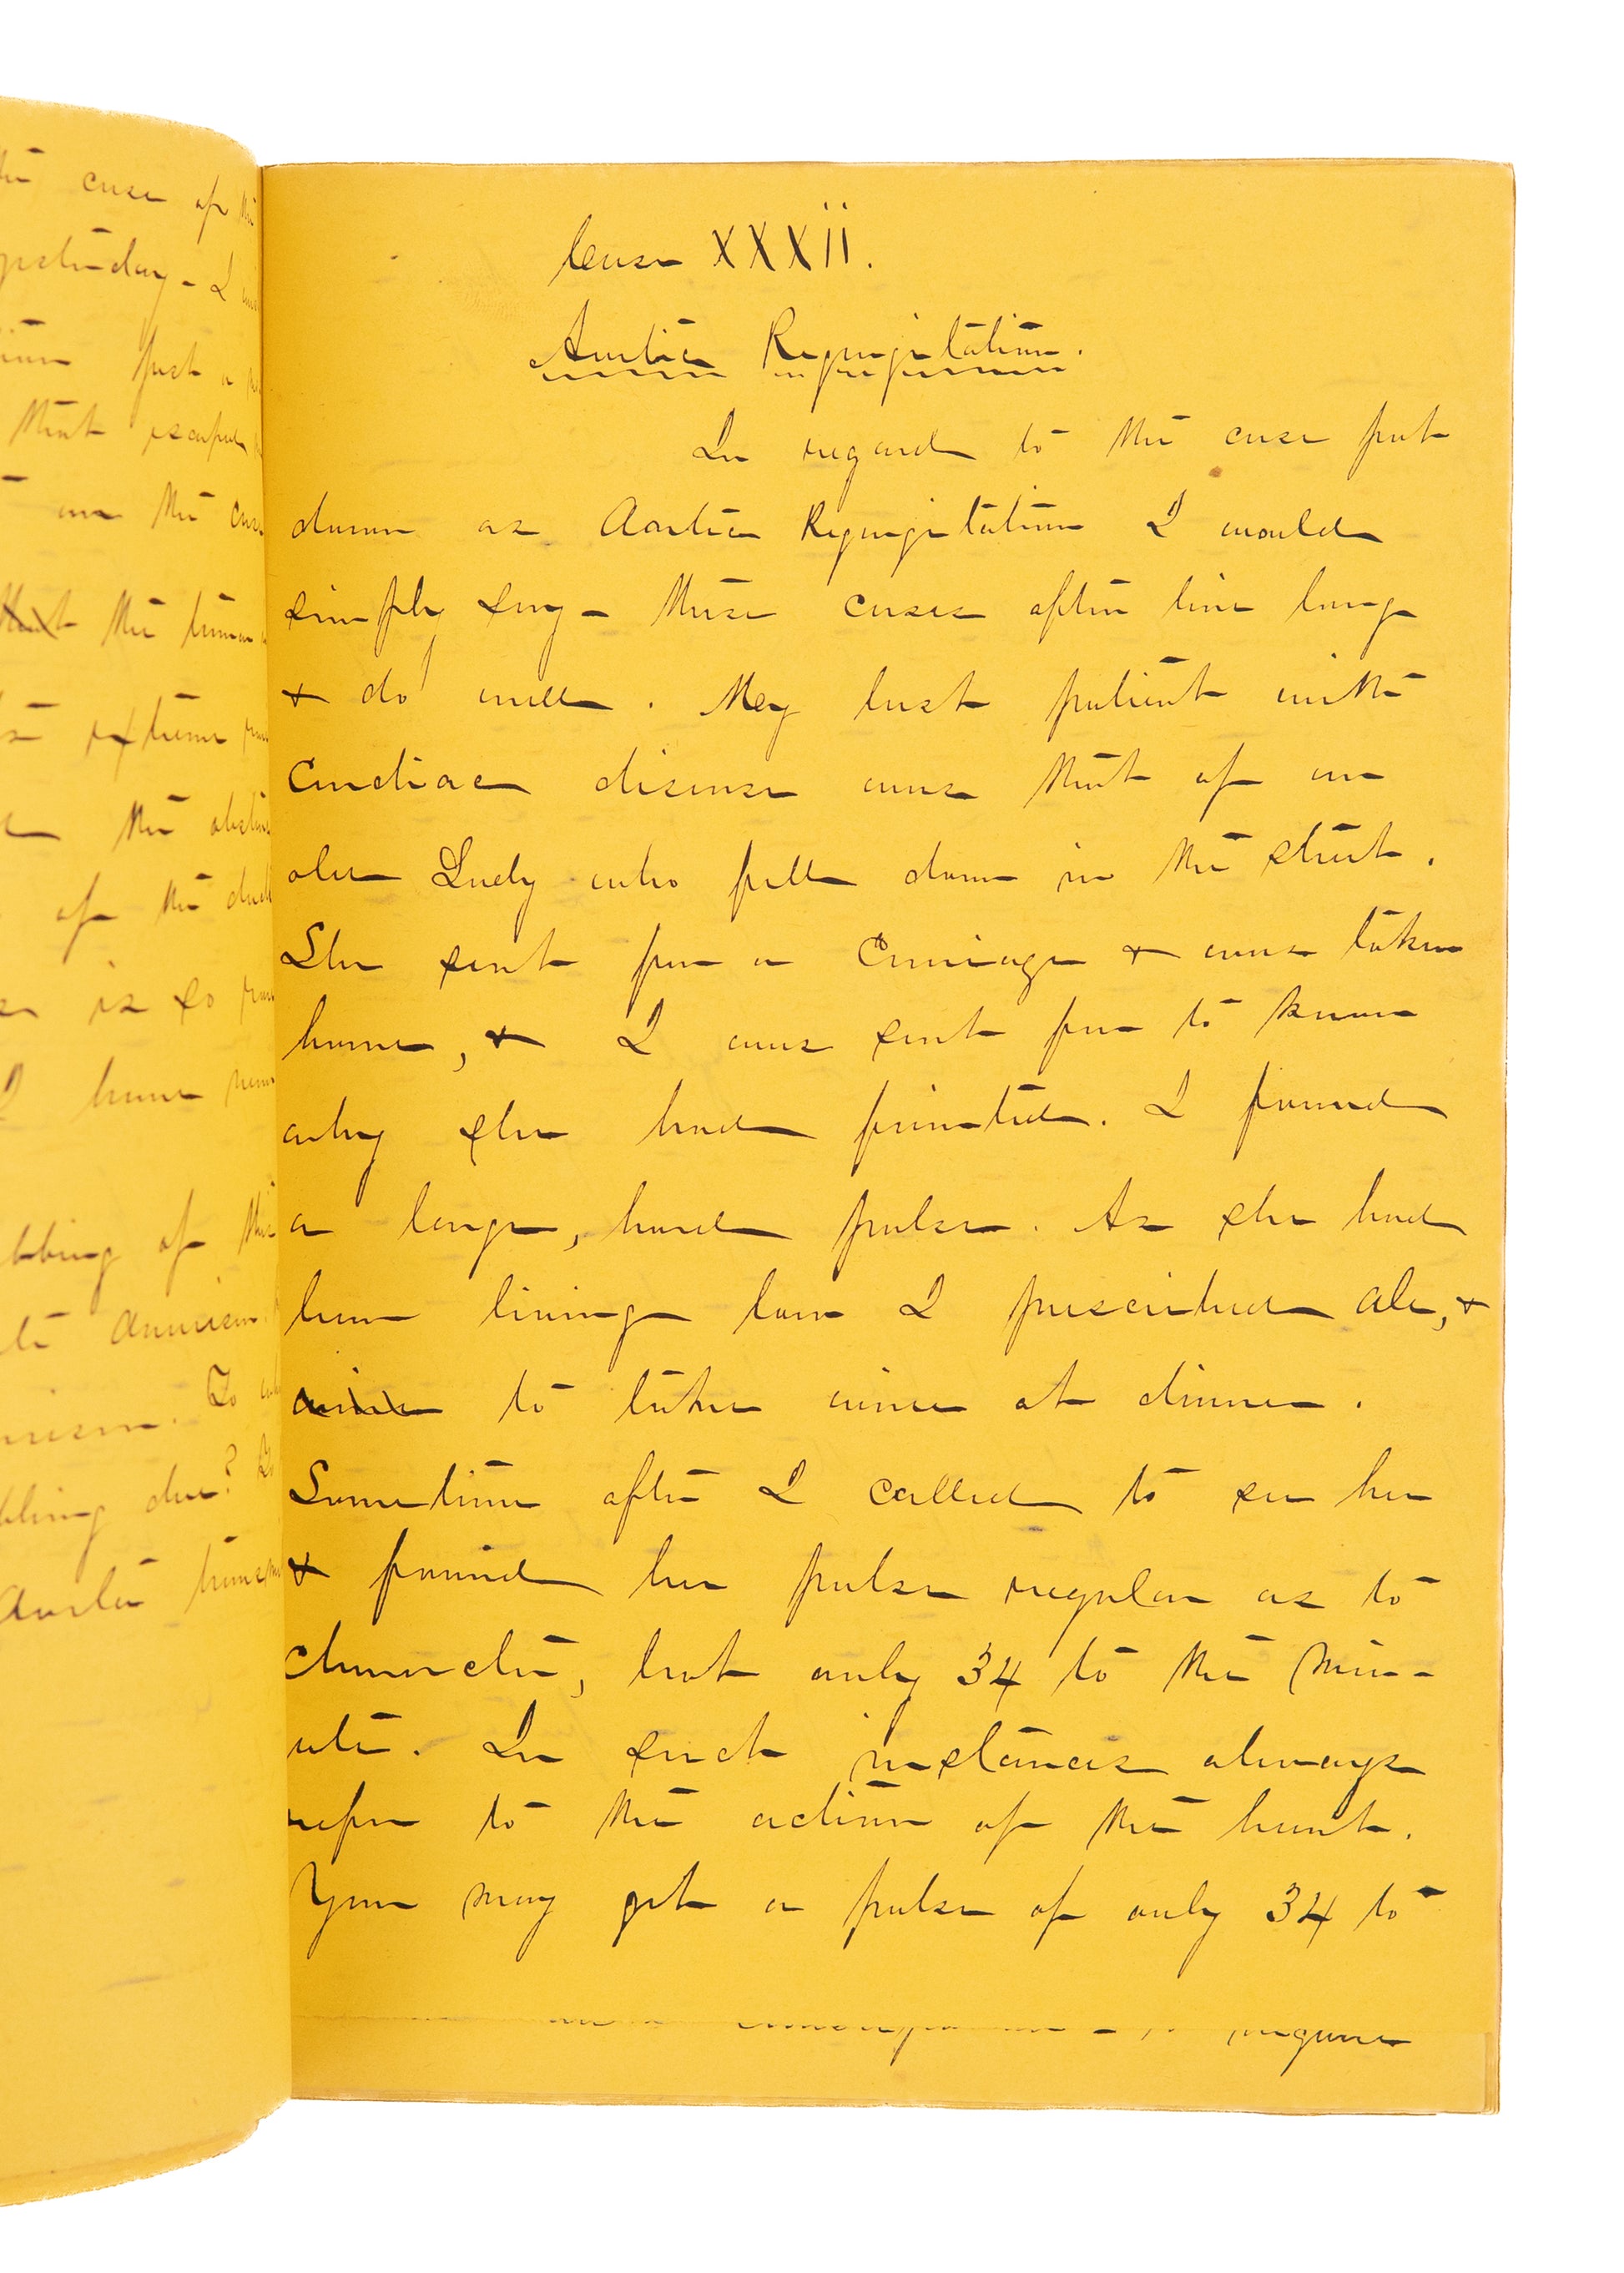 the case of the
yesterday - I
just a
that escaped
on the case
that the tumor
extreme
the
of the
is so
I have
of this
aneurism
due?
Aortic
Case XXXII.
Aortic Regurgitation.
In regard to the case put
down as Aortic Regurgitation I would
simply say - these cases often live long
& do well. My last patient with
Cardiac disease was that of an
old Lady who fell down in the street.
She sent for a Carriage & was taken
home, & I was sent for to know
why she had fainted. I found
a large, hard pulse. As she had
been living low I prescribed ale, &
wine to take wine at dinner.
Sometime after I called to see her
& found her pulse regular as to
character, but only 34 to the min-
ute. In such instances always
refer to the action of the heart.
You may get a pulse of only 34 to